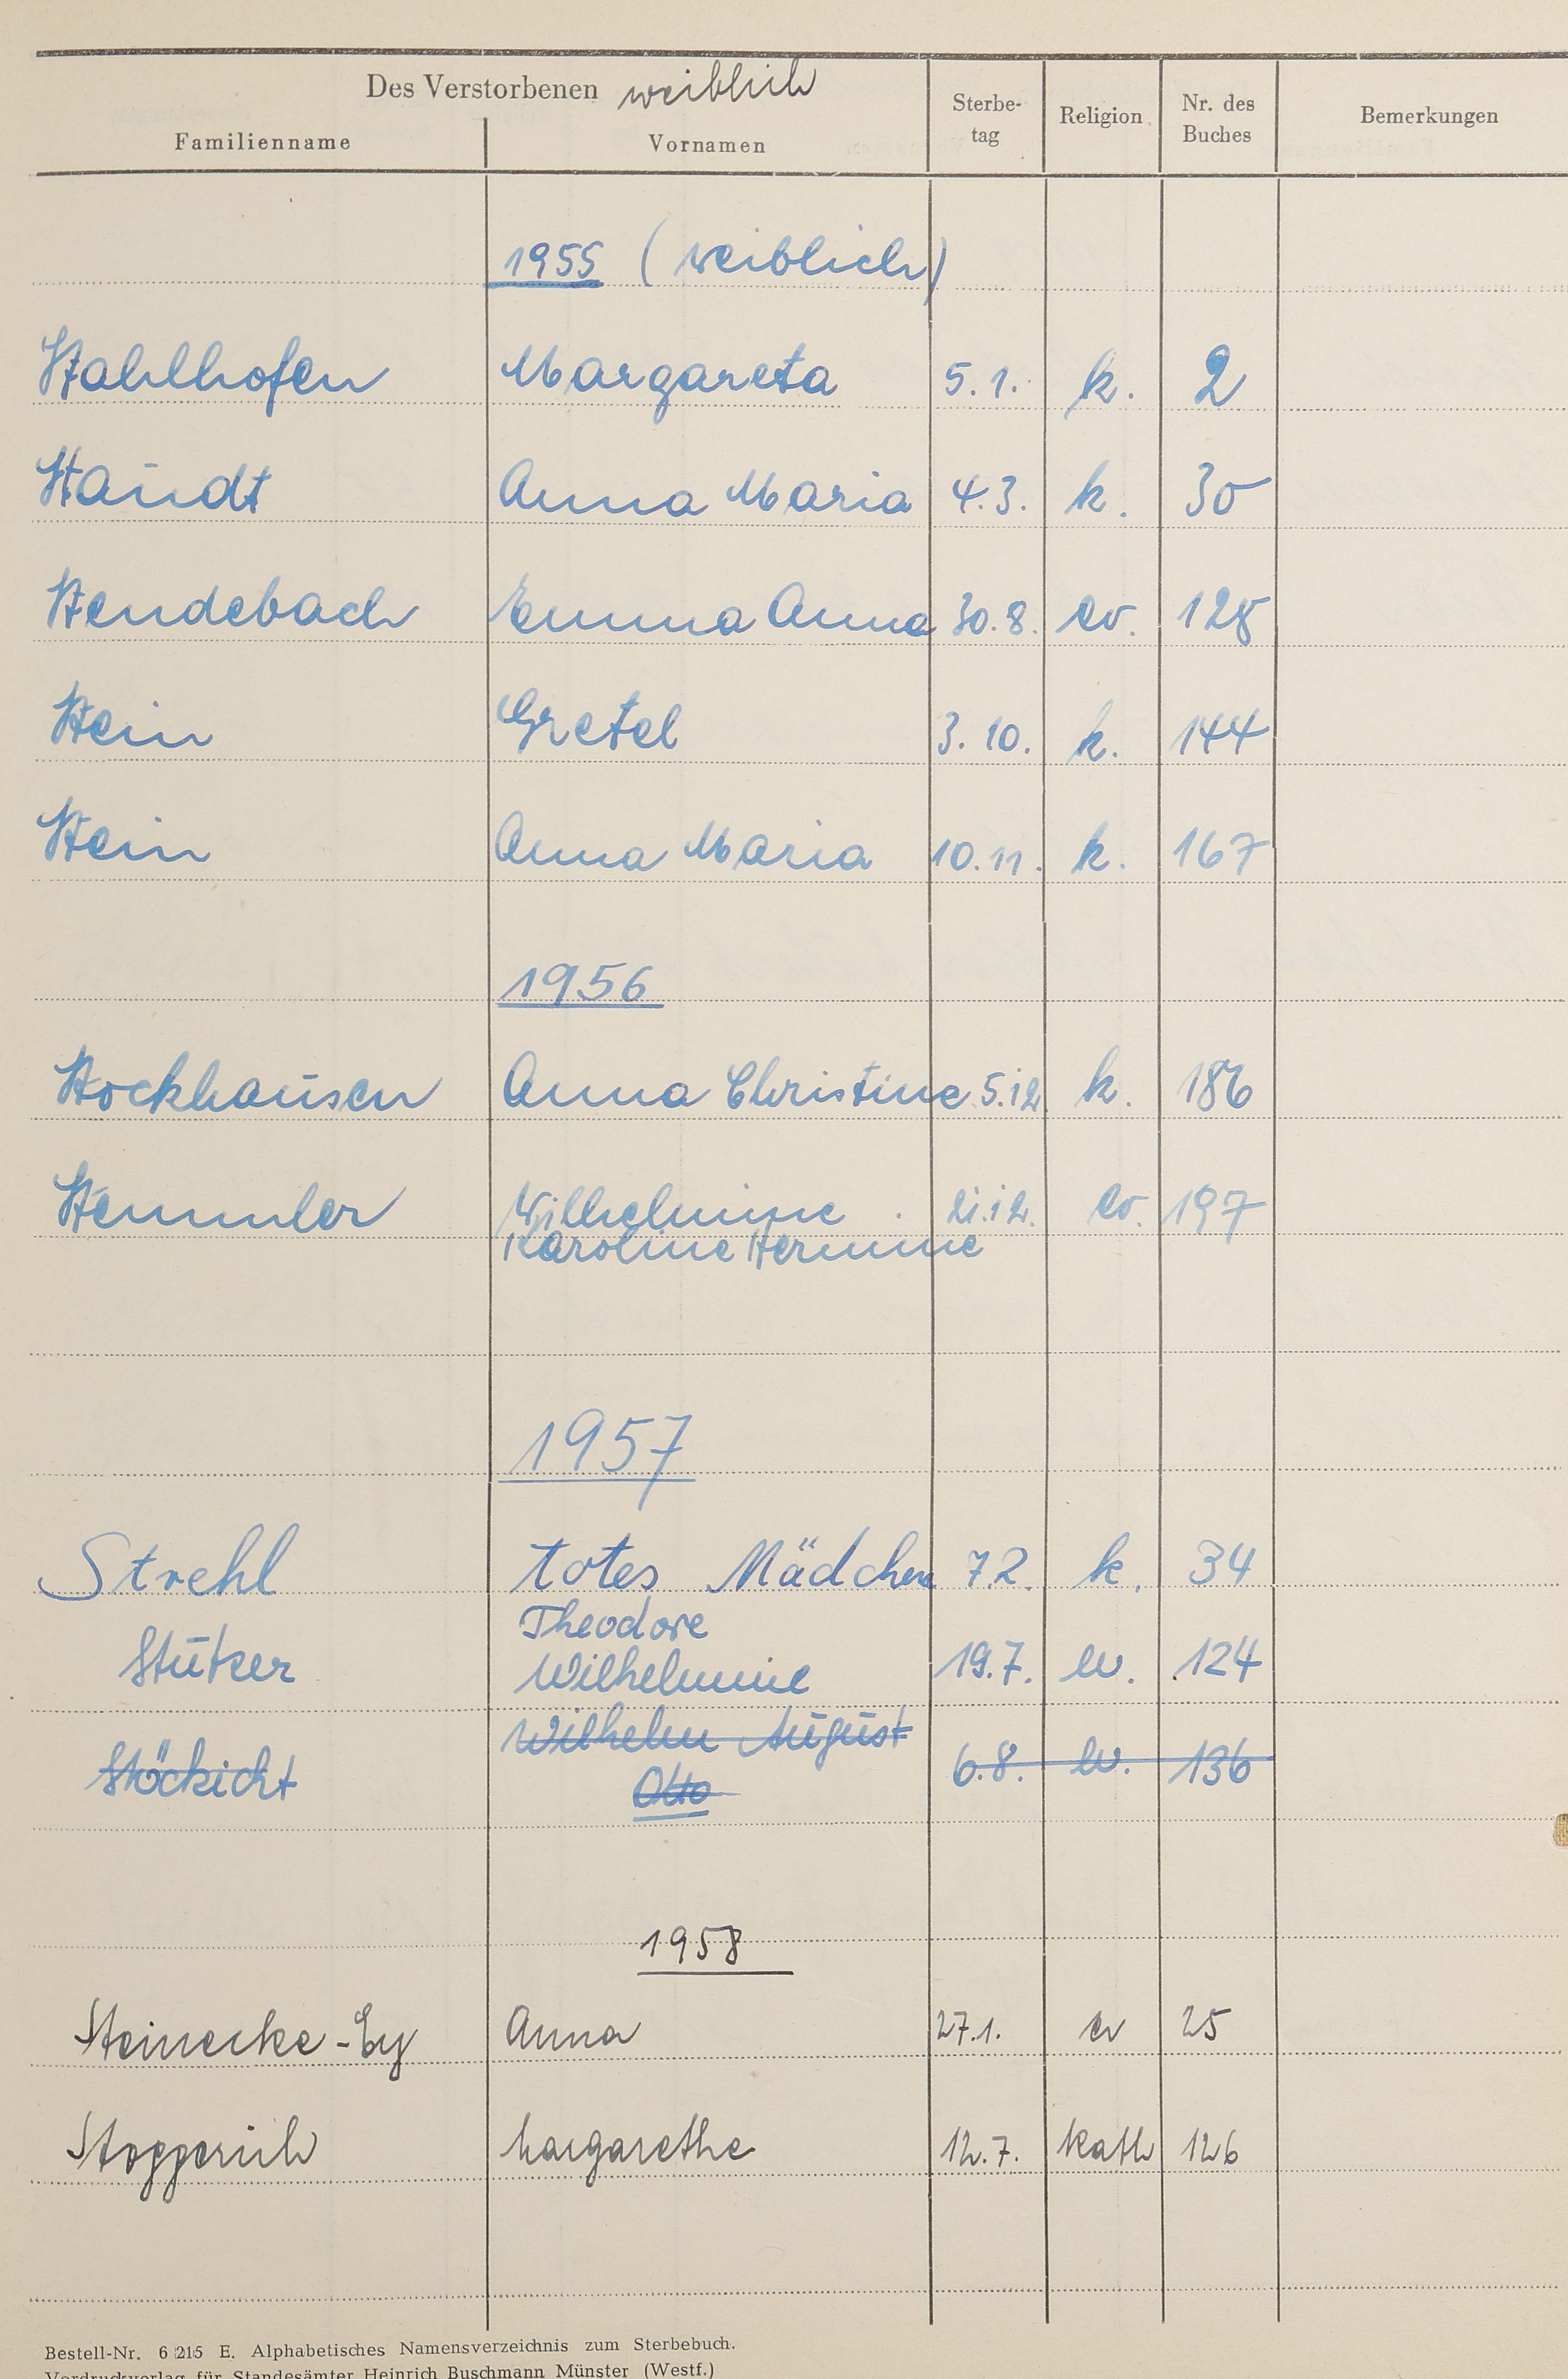 Des Verstorbenen weiblich
Familienname Vornamen Sterbe-tag Religion Nr. des Buches Bemerkungen
1955 (weiblich)
Stahlhofen Margareta 5.1. k. 2
Staudt Anna Maria 4.3. k. 30
Stendebach Emma Anna 30.8. ev. 128
Stein Gretel 3.10. k. 144
Stein Anna Maria 10.11. k. 167
1956
Stockhausen Anna Christine 5.12 k. 186
Stemmler Wilhelmine 21.12. ev. 197
Karoline Hermine
1957
Strehl totes Mädchen 7.2. k. 34
Theodore
Stutzer Wilhelmine 19.7. ev. 124
Wilhelm August
Stöckicht Otto 6.8. ev. 136
1958
Steinecke-Ey Anna 27.1. ev 25
Stopperich Margarethe 12.7. kath 126
Bestell-Nr. 6 215 E. Alphabetisches Namensverzeichnis zum Sterbebuch.
Vordruckverlag für Standesämter Heinrich Buschmann Münster (Westf.)